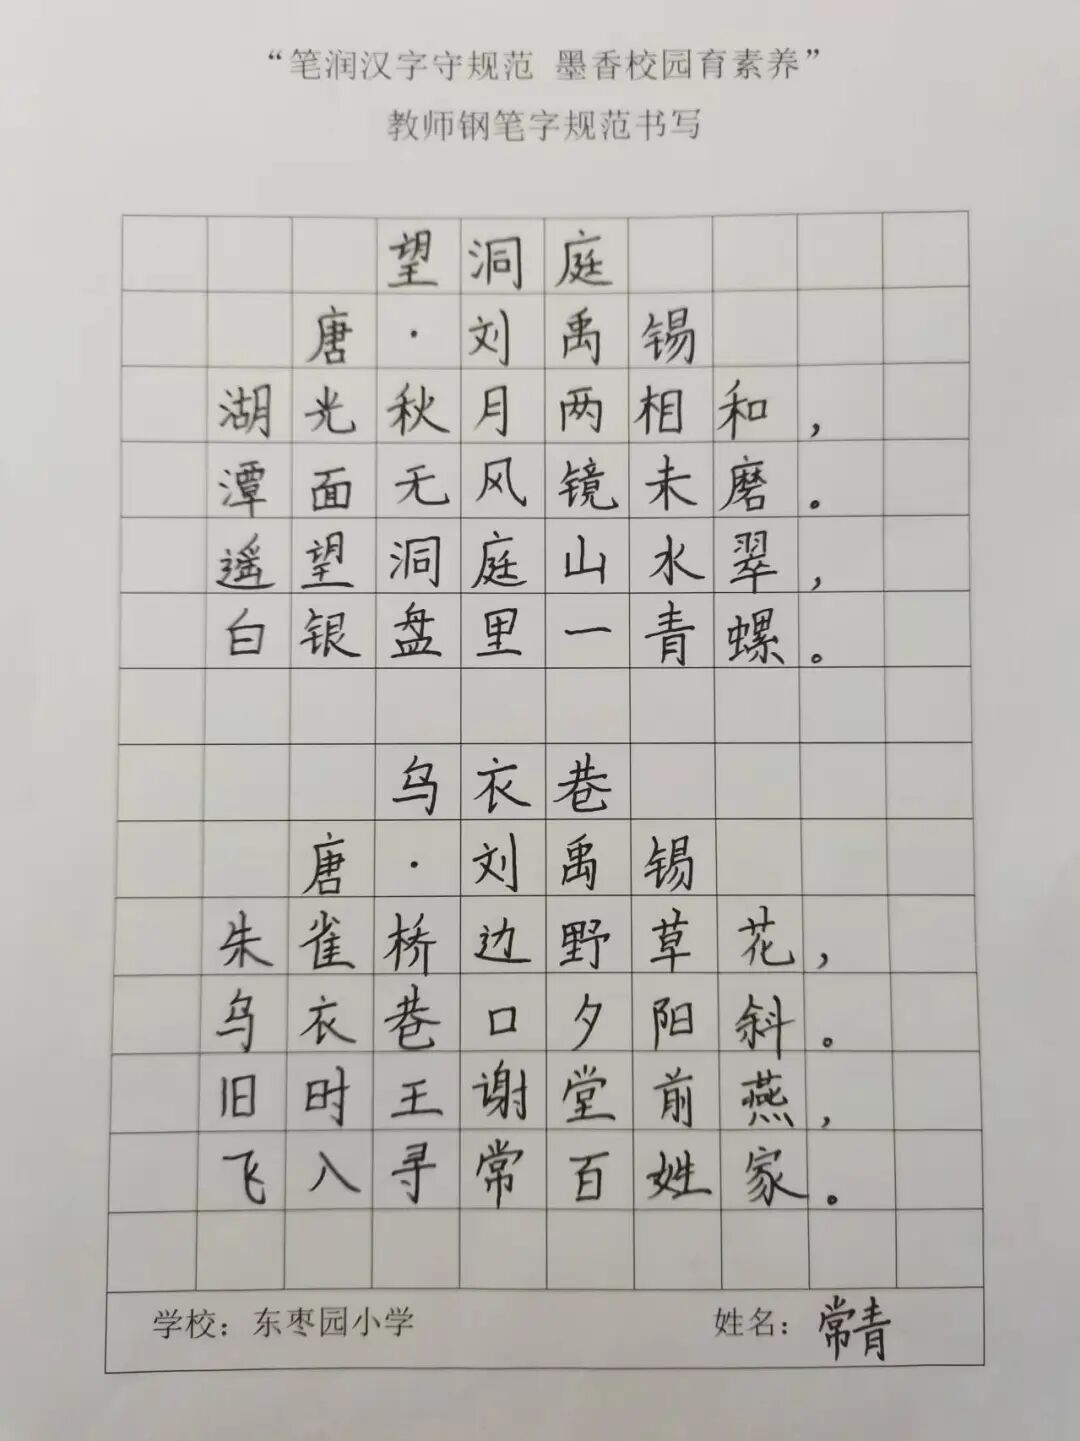 “笔润汉字守规范 墨香校园育素养”
教师钢笔字规范书写
望洞庭
唐·刘禹锡
湖光秋月两相和，
潭面无风镜未磨。
遥望洞庭山水翠，
白银盘里一青螺。
乌衣巷
唐·刘禹锡
朱雀桥边野草花，
乌衣巷口夕阳斜。
旧时王谢堂前燕，
飞入寻常百姓家。
学校：东枣园小学 姓名：常青